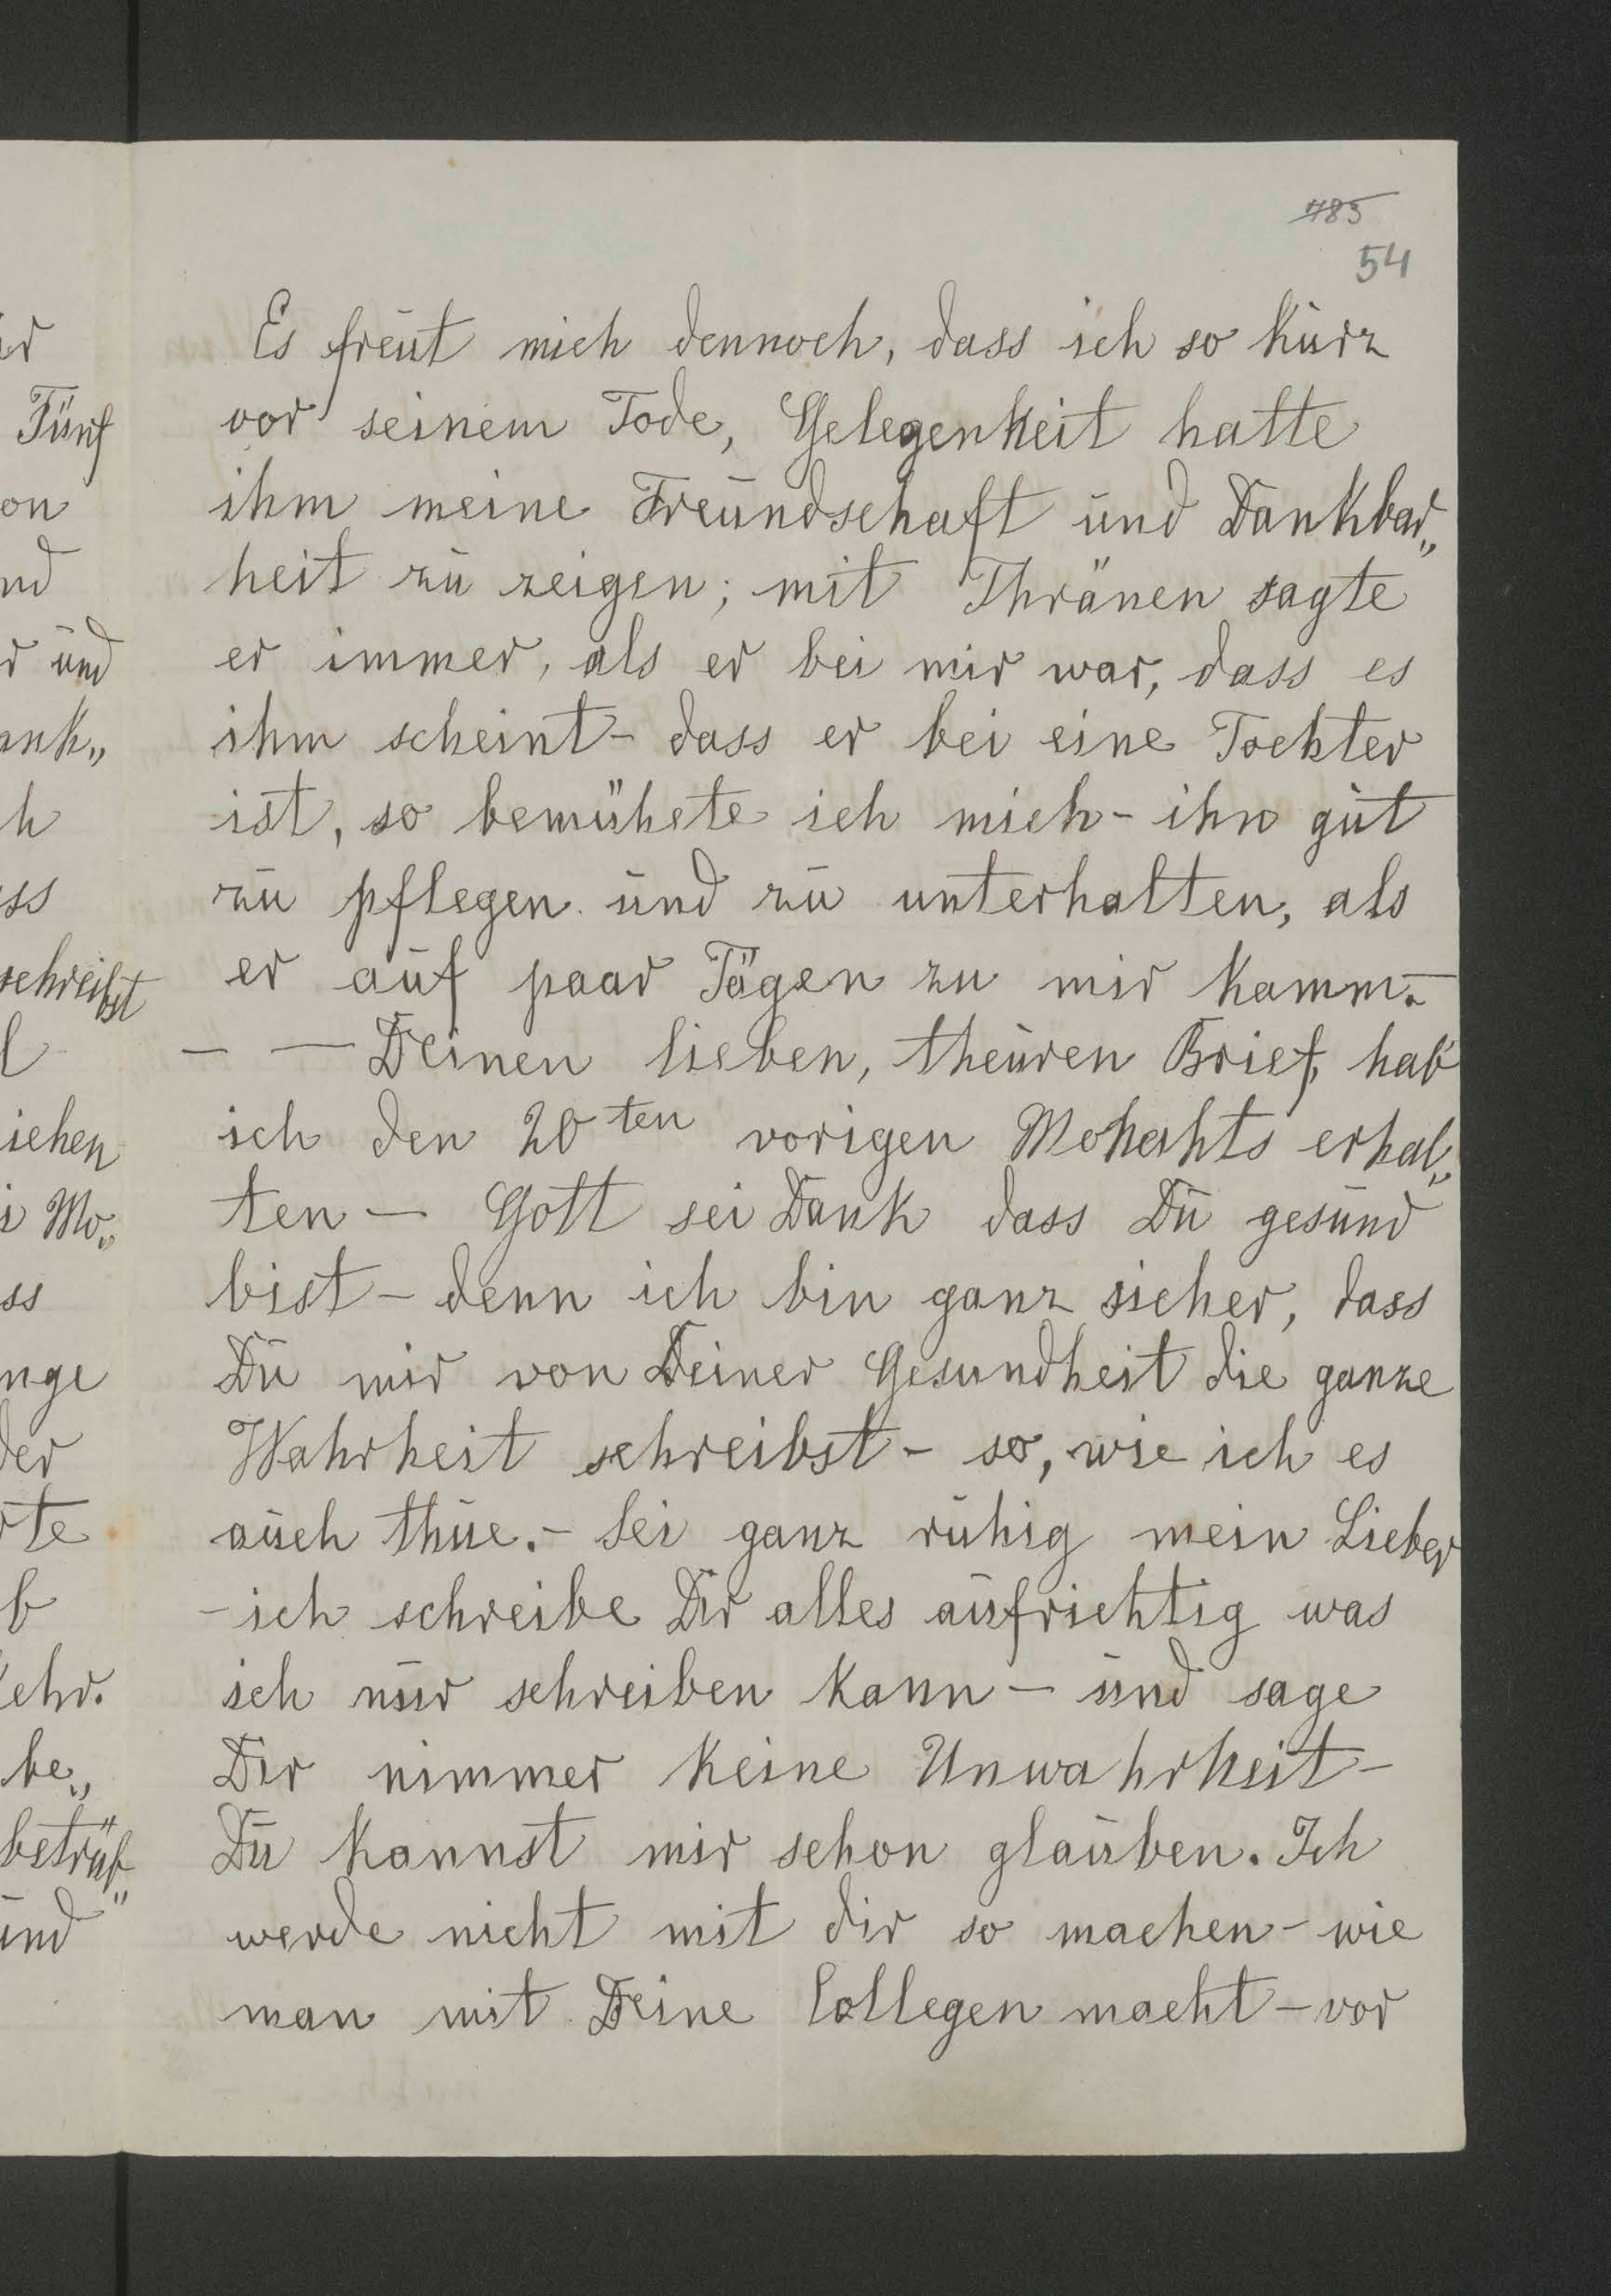 483
54
Es freut mich dennoch, dass ich so kurz
vor seinem Tode, Gelegenheit hatte
ihm meine Freundschaft und Dankbar„
heit zu zeigen; mit Thränen sagte
er immer, als er bei mir war, dass es
ihm scheint - dass er bei eine Tochter
ist, so bemühete ich mich - ihn gut
zu pflegen und zu unterhalten, als
er auf paar Tägen zu mir kamm. -
- — Deinen lieben, theuren Brief, hab
ich den 20ten vorigen erhal„
ten — Gott sei Dank dass Du gesund
bist - denn ich bin ganz sicher, dass
Du mir von Deiner Gesundheit die ganze
Wahrheit schreibst - so, wie ich es
auch thue. - Sei ganz ruhig mein Lieber
- ich schreibe Dir alles aufrichtig was
ich nur schreiben kann — und sage
Dir nimmer keine Unwahrheit -
Du kannst mir schon glauben. Ich
werde nicht mit dir so machen - wie
man mit Deine Collegen macht - vor